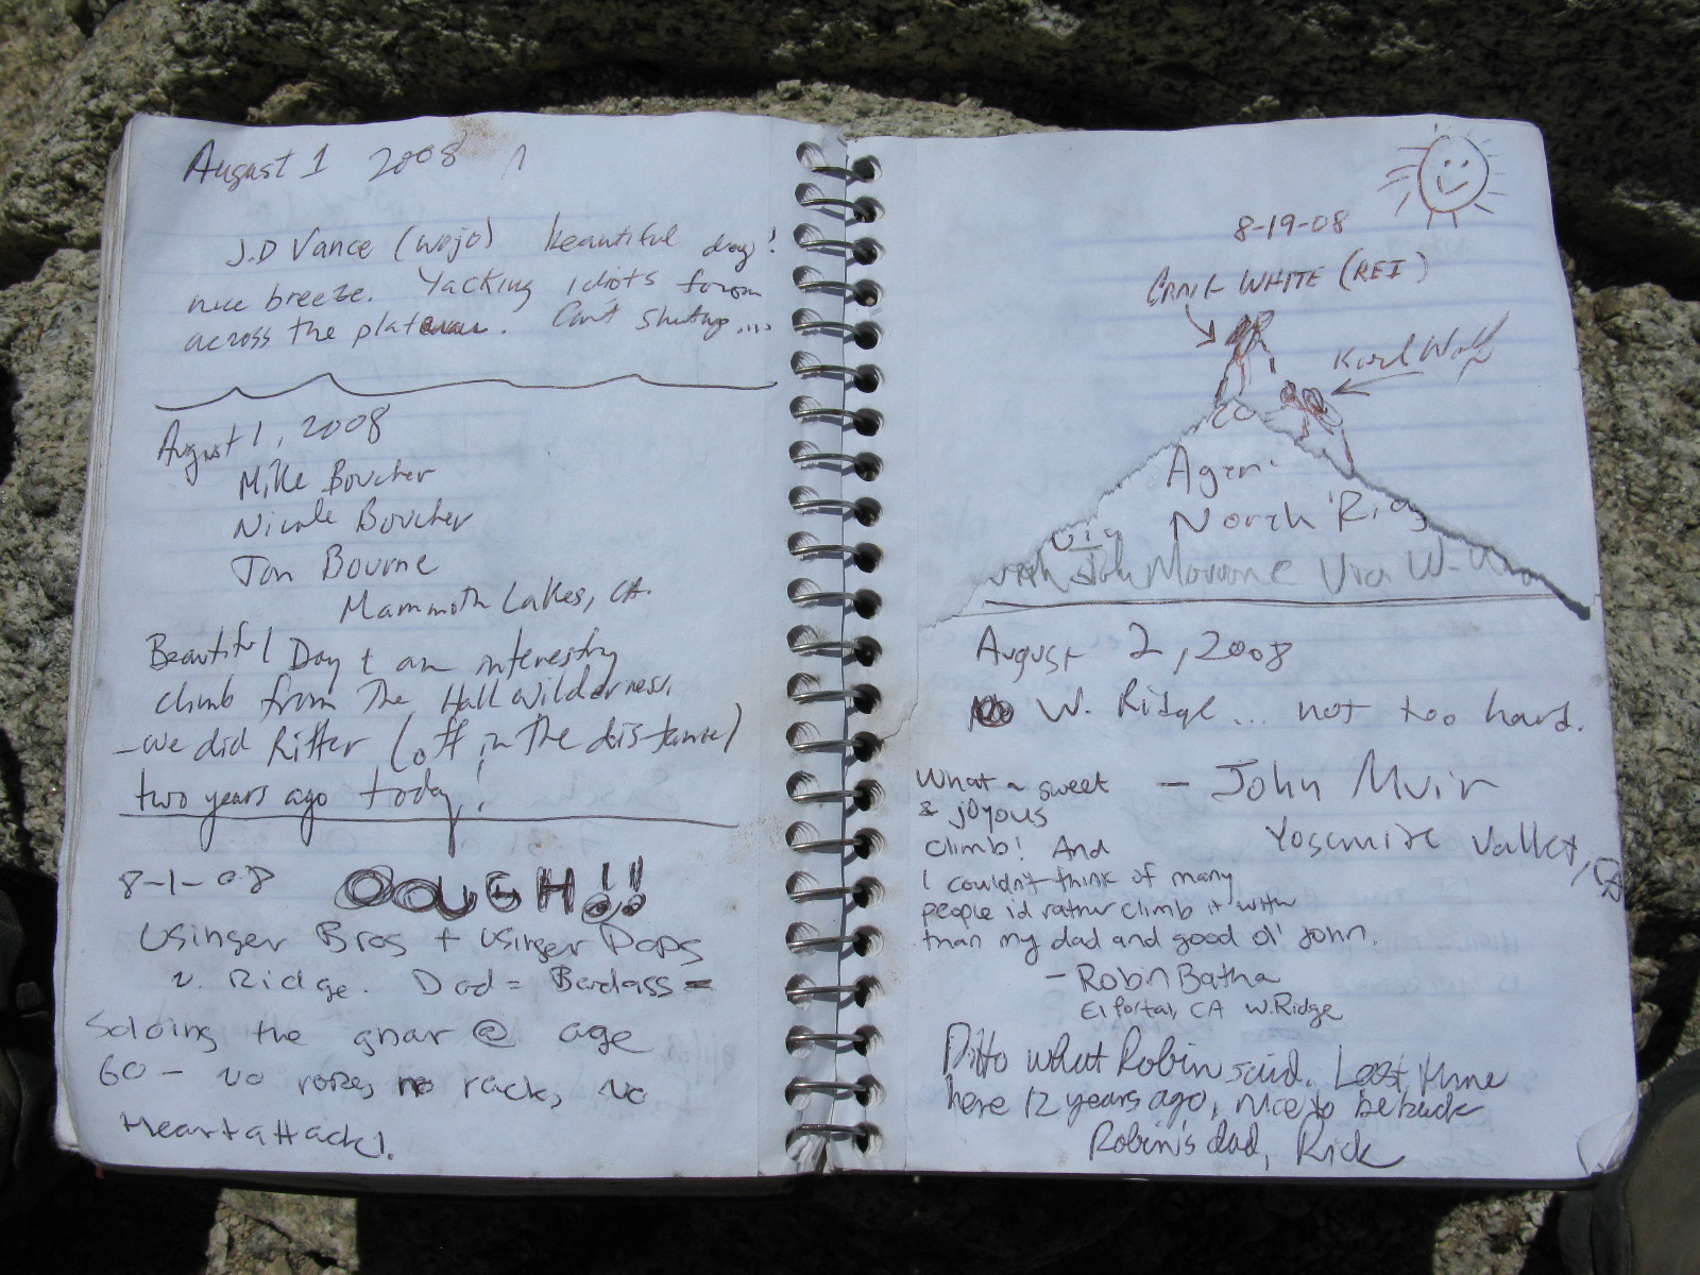 August 1 2008
J.D Vance (wojo) beautiful day!
nice breeze. Yacking idiots from
across the plateau. Can't shutup...
August 1, 2008
Mike Boucher
Nicole Boucher
Jon Bourne
Mammoth Lakes, CA.
Beautiful Day & an interesting
climb from the Hall Wilderness.
- we did Ritter (off in the distance)
two years ago today!
8-1-08 OOUGH!!
Usinger Bros + Usinger Pops
N. Ridge. Dad = Badass =
Soloing the gnar @ age
60 - no rope, no rack, no
Heart attack!
8-19-08
WHITE (REI)
Karl Wolf
Again
North Ridg
via
John via W.
August 2, 2008
W. Ridge... not too hard.
- John Muir
Yosemite Valley, CA
What a sweet
& joyous
climb! And
I couldn't think of many
people i'd rather climb it with
than my dad and good ol' John.
- Robin Batha
El Portal, CA W. Ridge
Ditto what Robin said. Last time
here 12 years ago, nice to be back
Robin's dad, Rick